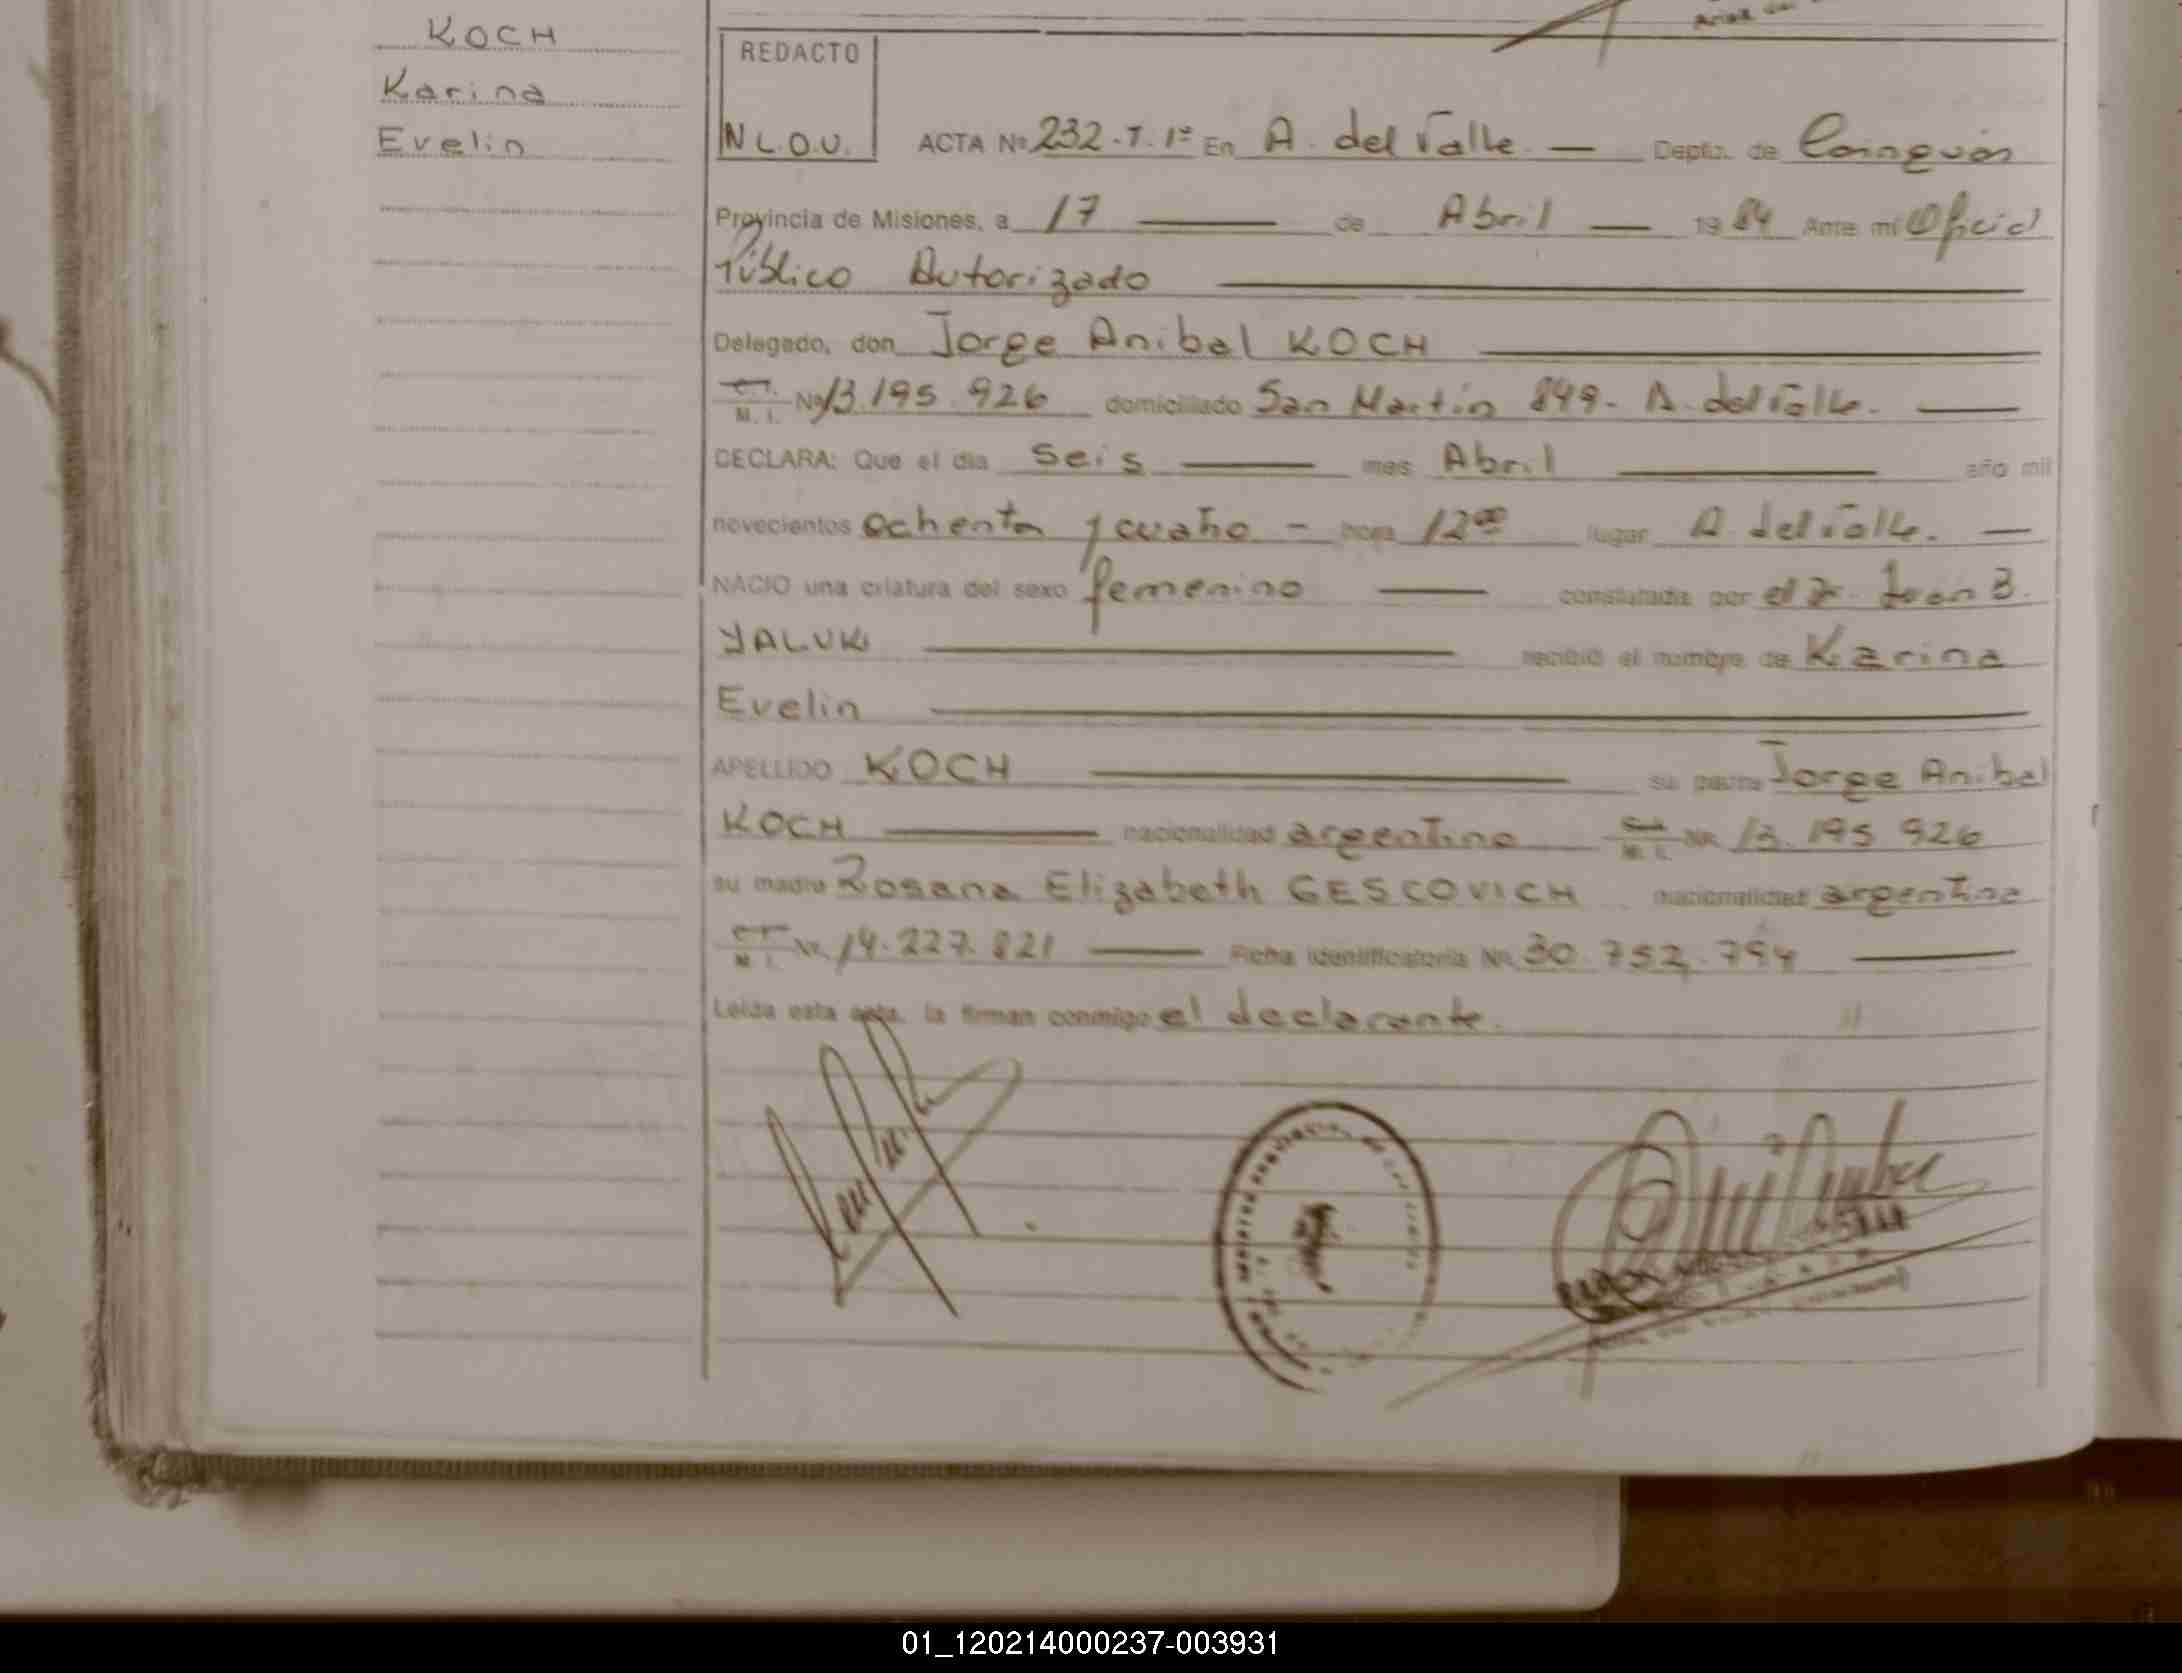 KOCH
Karina
Evelin
REDACTO
N L.O.U.
ACTA Nº 232.T.1º En A. del Valle. — Depto. de Cainguás
Provincia de Misiones, a 17 — de Abril — 1984 Ante mí Oficial
Público Autorizado
Delegado, don Jorge Anibal KOCH
C.I. M. I. Nº 13.195.926 domiciliado San Martín 849- A. del Valle. —
DECLARA: Que el día Seis — mes Abril — año mil
novecientos ochenta y cuatro - hora 12⁰⁰ lugar A. del Valle. —
NACIO una criatura del sexo femenino — constatada por el Dr. Juan B.
YALUK — recibió el nombre de Karina
Evelin
APELLIDO KOCH — su padre Jorge Anibal
KOCH — nacionalidad argentino C.I. M. I. Nº 13.195 926
su madre Rosana Elizabeth GESCOVICH nacionalidad argentina
C.I. M. I. Nº 14.227.821 — Ficha Identificatoria Nº 30.752.794 —
Leída esta acta, la firman conmigo el declarante.
01_120214000237-003931